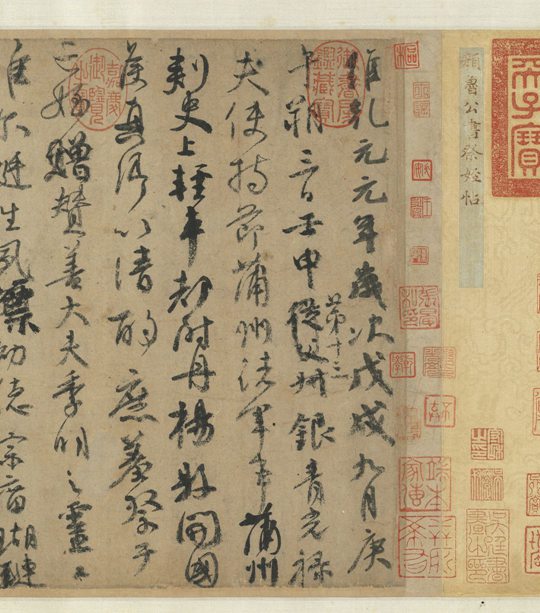 天子寶
顏魯公書祭姪帖
維乾元元年歲次戊戌九月庚
午朔三日壬申第十三從父叔銀青光祿
夫使持節蒲州諸軍事蒲州
刺史上輕車都尉丹楊縣開國
侯真卿以清酌庶羞祭于
亡姪贈贊善大夫季明之靈曰
惟爾挺生夙標幼德宗廟瑚璉
御書房鑑藏寶
嘉慶御覽之寶